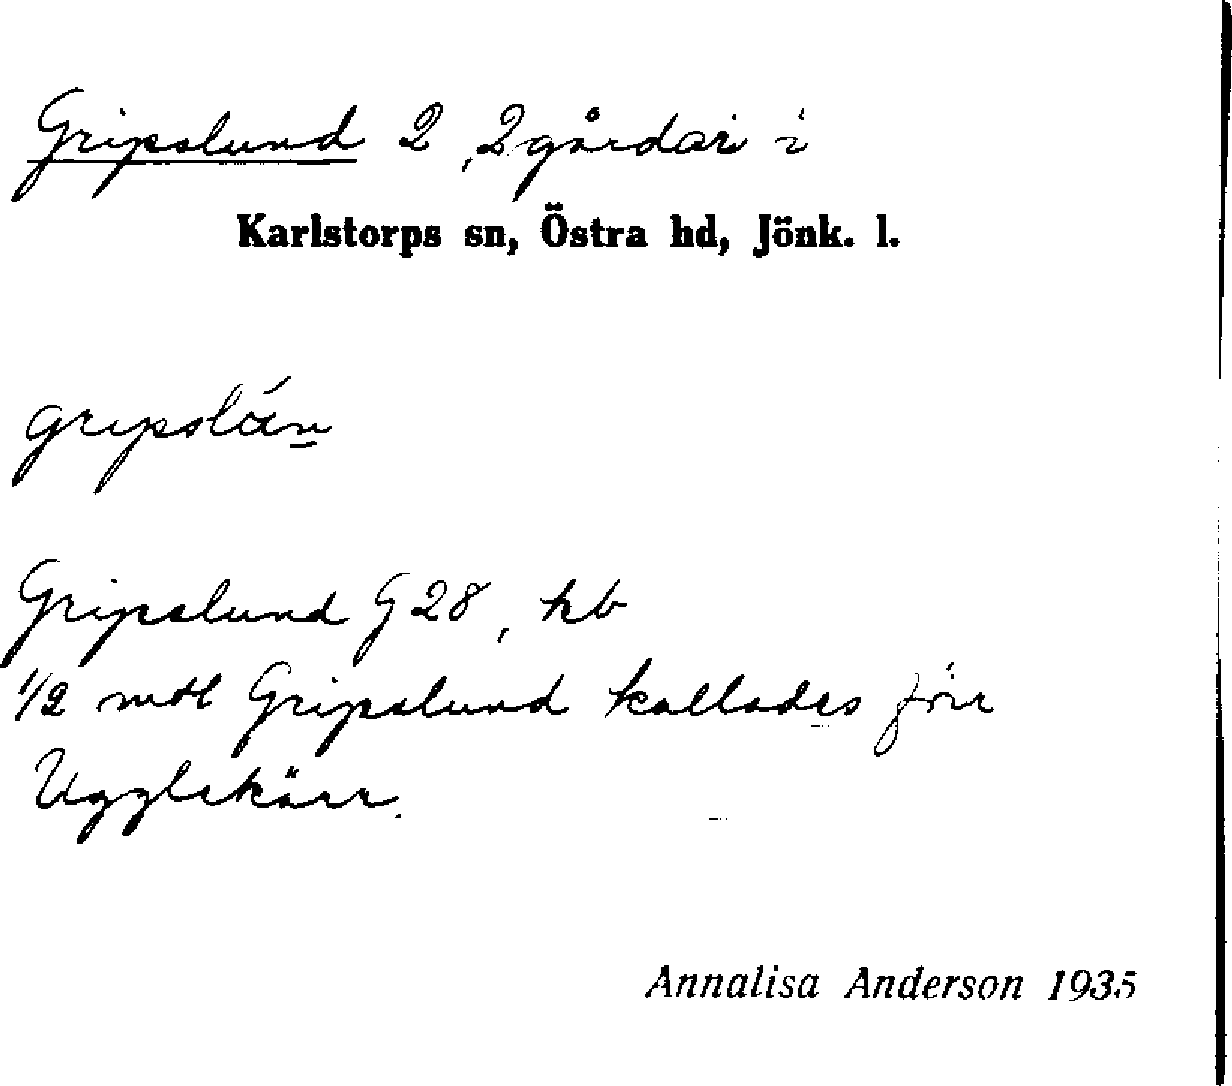 Gripslund 2, 2 gårdar i
Karlstorps sn, Östra hd, Jönk. l.
Gripslund G 28, hb
1/2 mtl Gripslund kallades förr
Ugglekärr.
Annalisa Anderson 1935